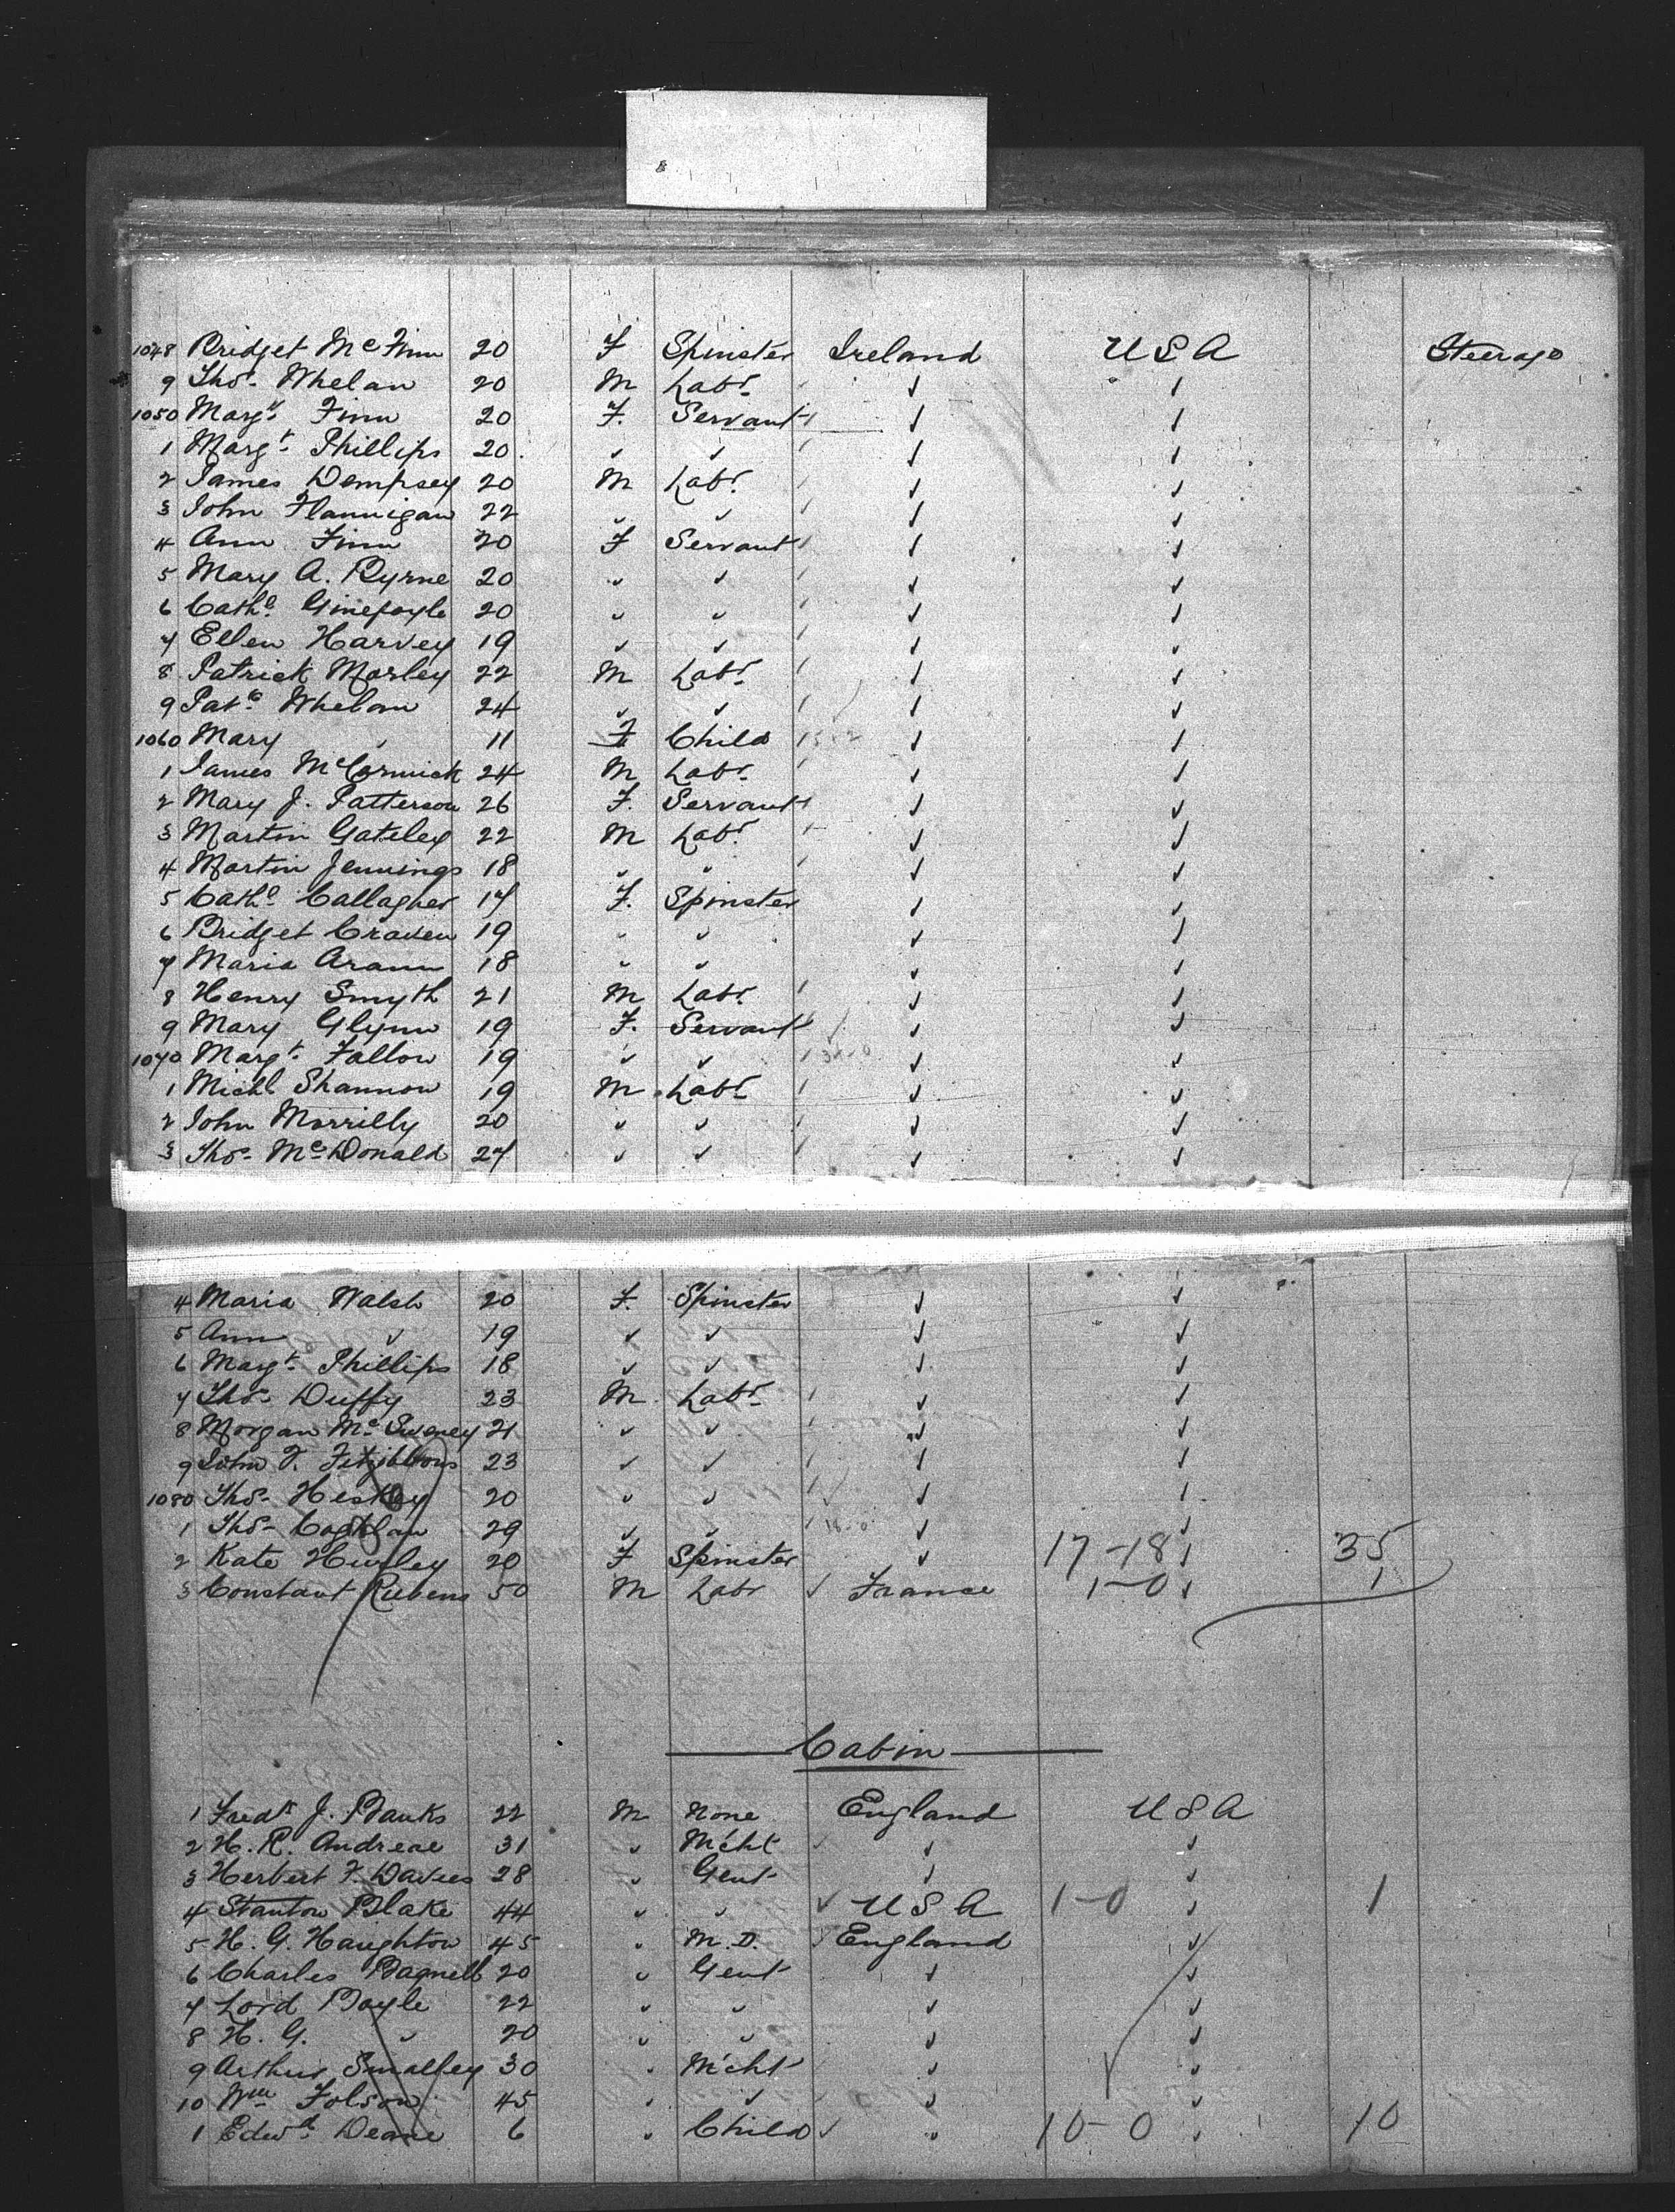 1048 Bridget McFinn 20 F Spinster Ireland USA Steerage
9 Thos. Whelan 20 M Labr. ✓ ✓
1050 Margt. Finn 20 F. Servant ✓ ✓
1 Margt. Phillips 20 ✓ ✓ ✓ ✓
2 James Dempsey 20 M Labr. ✓ ✓
3 John Flannigan 22 ✓ ✓ ✓ ✓
4 Ann Finn 20 F Servant ✓ ✓
5 Mary A. Byrne 20 ✓ ✓ ✓ ✓
6 Cathe. 20 ✓ ✓ ✓ ✓
7 Ellen Harvey 19 ✓ ✓ ✓ ✓
8 Patrick Morley 22 M Labr. ✓ ✓
9 Patk. Whelan 24 ✓ ✓ ✓ ✓
1060 Mary ✓ 11 F Child ✓ ✓
1 James McCormick 24 M Labr. ✓ ✓
2 Mary J. Patterson 26 F. Servant ✓ ✓
3 Martin Gateley 22 M Labr. ✓ ✓
4 Martin Jennings 18 ✓ ✓ ✓ ✓
5 Cathe. Callagher 17 F. Spinster ✓ ✓
6 Bridget Craven 19 ✓ ✓ ✓ ✓
7 Maria Arann 18 ✓ ✓ ✓ ✓
8 Henry Smyth 21 M Labr. ✓ ✓
9 Mary Glynn 19 F. Servant ✓ ✓
1070 Margt. Fallon 19 ✓ ✓ ✓ ✓
1 Michl Shannon 19 M Labr. ✓ ✓
2 John Morrilly 20 ✓ ✓ ✓ ✓
3 Thos. McDonald 27 ✓ ✓ ✓ ✓
4 Maria Walsh 20 F. Spinster ✓ ✓
5 Ann ✓ 19 ✓ ✓ ✓ ✓
6 Margt. Phillips 18 ✓ ✓ ✓ ✓
7 Thos. Duffy 23 M Labr. ✓ ✓
8 Morgan McSweney 21 ✓ ✓ ✓ ✓
9 John F. Fitzgibbons 23 ✓ ✓ ✓ ✓
1080 Thos. Heskey 20 ✓ ✓ ✓ ✓
1 Thos. Coghlan 29 ✓ ✓ ✓ ✓
2 Kate Hurley 20 F Spinster ✓ 17-18 ✓ 35
3 Constant Rubens 50 M Labr ✓ France 1-0 ✓ 1
Cabin
1 Fredk J. Banks 22 M None England USA
2 H. R. Andreae 31 ✓ Mcht ✓ ✓
3 Herbert F. Davies 28 ✓ Gent ✓ ✓
4 Stanton Blake 44 ✓ ✓ ✓ USA 1-0 ✓ 1
5 H. G. Haughton 45 ✓ M.D. England ✓
6 Charles Bagnell 20 ✓ Gent ✓ ✓
7 Lord Boyle 22 ✓ ✓ ✓ ✓
8 H. G. ✓ 20 ✓ ✓ ✓ ✓
9 Arthur Smalley 30 ✓ Mcht ✓ ✓
10 Wm Folsom 45 ✓ ✓ ✓ ✓
1 Edwd. Deane 6 ✓ Child ✓ ✓ 10-0 ✓ 10